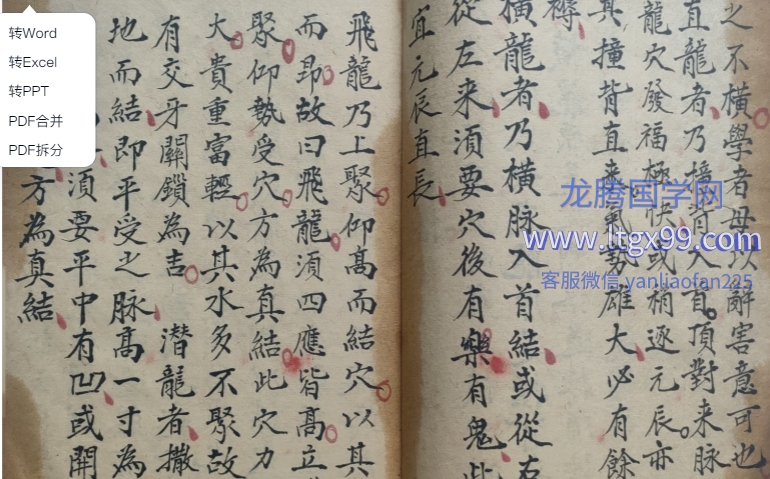 之不橫學者毋以辭害意可也
直龍者乃撞背入首頂對来脉
龍穴發福極快或稍逐元辰亦
其撞背直来氣勢雄大必有餘
橫龍者乃橫脉入首結或從右
從左来須要穴後有樂有鬼此
宜元辰直長
飛龍乃上聚仰髙而結穴以其
而昂故曰飛龍須四應皆髙立
聚仰勢受穴方為真結此穴力
大貴重富輕以其水多不聚故
有交牙關鎖為吉 潜龍者撒
地而結即平受之脉髙一寸為
須要平中有凹或開
方為真結
龙腾国学网
www.ltgx99.com
客服微信 yanliaofan225
转Word
转Excel
转PPT
PDF合并
PDF拆分